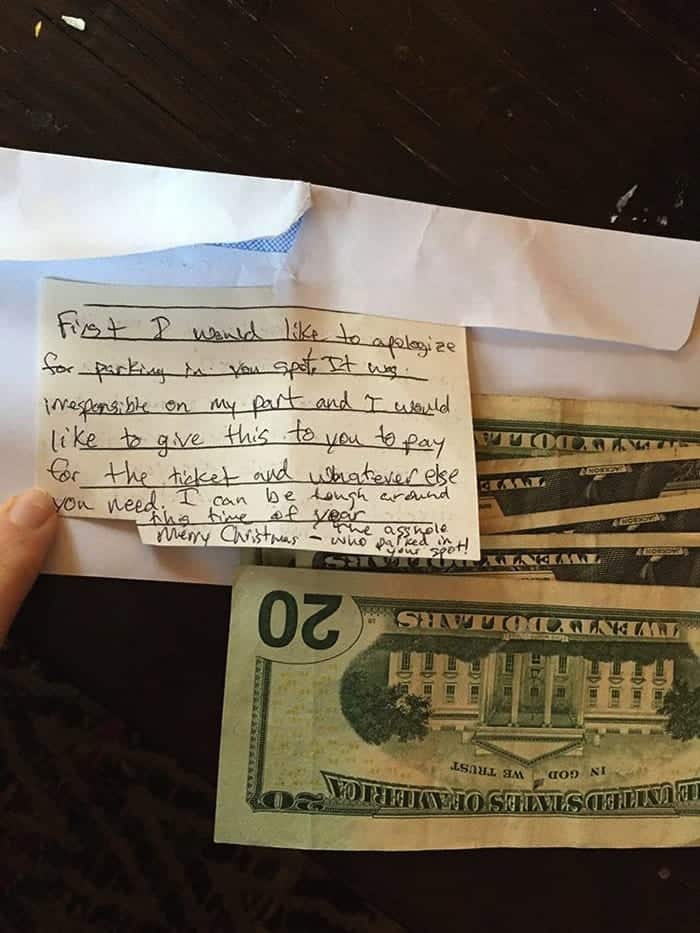 First I would like to apologize
for parking in you spot. It was
irresponsible on my part and I would
like to give this to you to pay
for the ticket and whatever else
you need. I can be tough around
this time of year
Merry Christmas - The asshole
who parked in
your spot!
JACKSON
JACKSON
JACKSON
20
TWENTY DOLLARS
IN GOD WE TRUST
THE UNITED STATES OF AMERICA
20